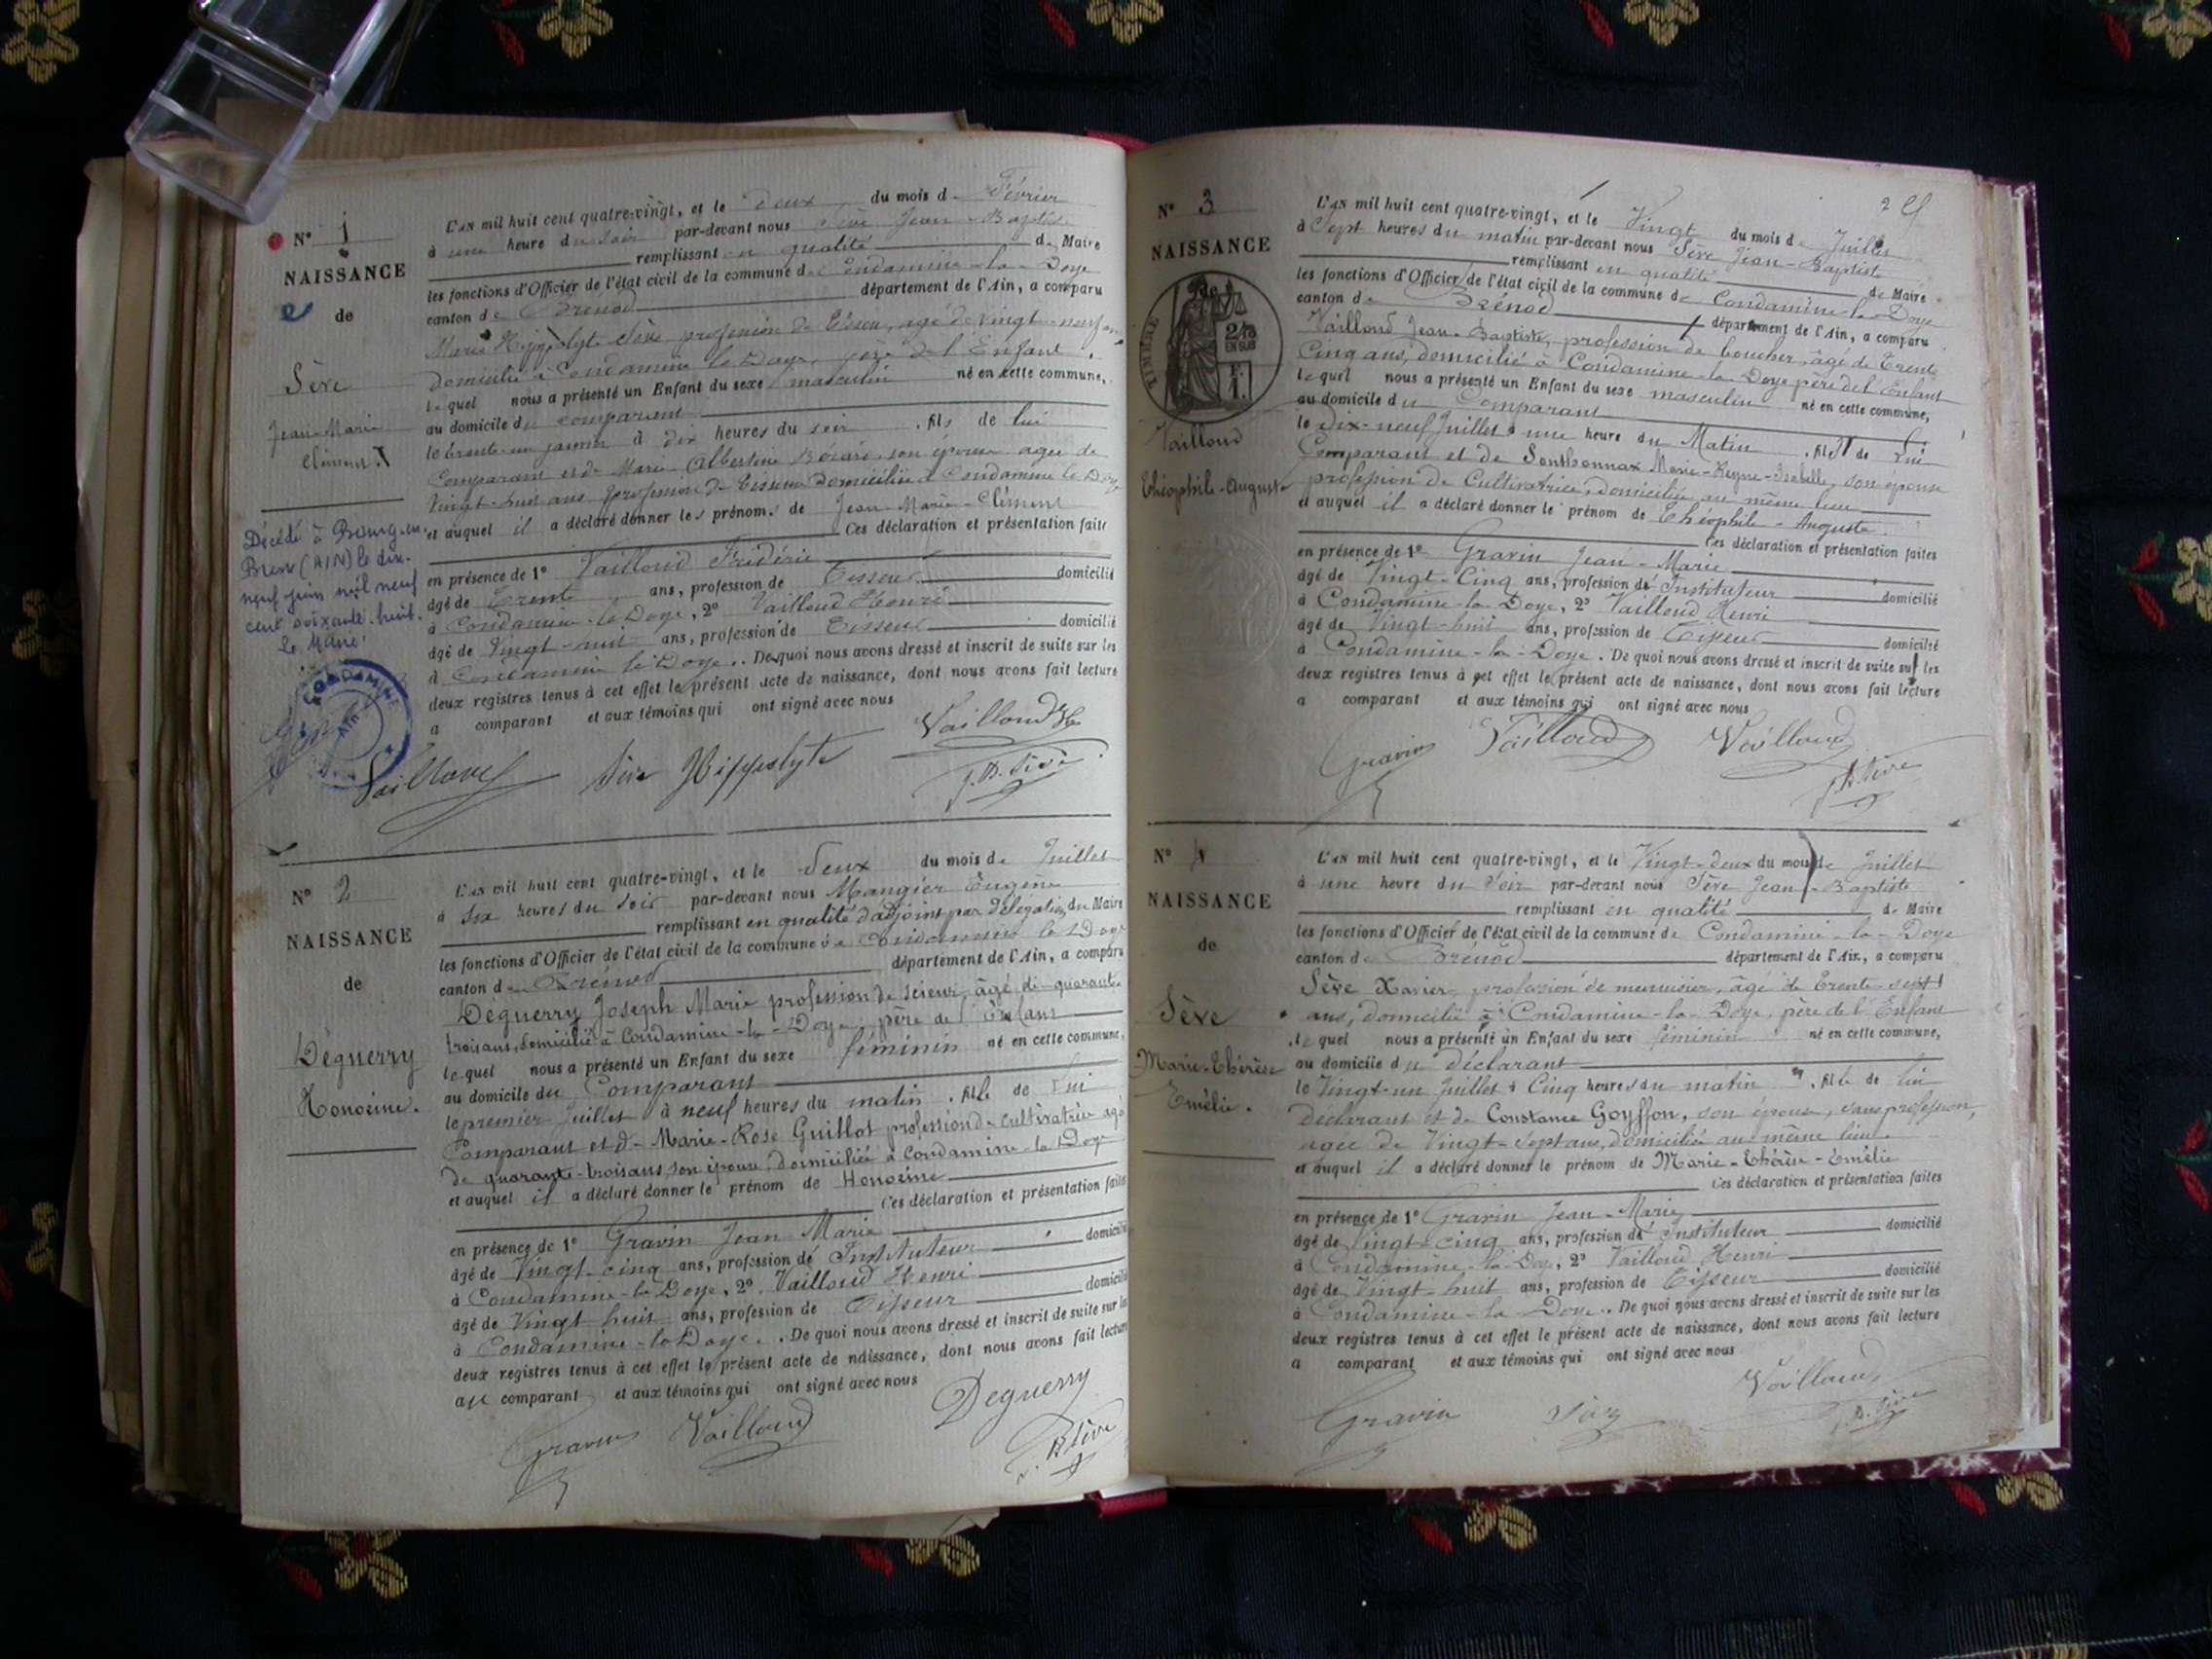 N° 1
NAISSANCE
de
Sève
Jean-Marie
Clément
Décédé à Bourg-en-
Bresse (AIN) le dix-
neuf juin mil neuf
cent soixante-huit.
Le Maire,
CONDAMINE
AIN
L'AN mil huit cent quatre-vingt, et le deux du mois de Février
à une heure du soir par-devant nous Sève Jean-Baptiste
remplissant en qualité de Maire
les fonctions d'Officier de l'état civil de la commune de Condamine-la-Doye
canton de Brénod département de l'Ain, a comparu
Marie Hippolyte Sève profession de Tisseur, agé de vingt-neuf ans
domicilié à Condamine la Doye, père de l'Enfant.
lequel nous a présenté un Enfant du sexe masculin né en cette commune,
au domicile du comparant
le trente-un janvier à dix heures du soir, fils de lui
Comparant et de Marie Albertine son épouse agée de
Vingt-huit ans profession de Tisseuse domiciliée à Condamine la Doye
et auquel il a déclaré donner les prénoms de Jean-Marie-Clément
Ces déclaration et présentation faites
en présence de 1° Vailloud Frédéric
âgé de Trente ans, profession de Tisseur domicilié
à Condamine-la-Doye, 2° Vailloud Henri
âgé de Vingt-huit ans, profession de Tisseur domicilié
à Condamine la Doye. De quoi nous avons dressé et inscrit de suite sur les
deux registres tenus à cet effet le présent acte de naissance, dont nous avons fait lecture
a comparant et aux témoins qui ont signé avec nous
Vailloud H
Vailloud Sève Hippolyte J.B. Sève
N° 2
NAISSANCE
de
Déguerry
Honoéine.
L'AN mil huit cent quatre-vingt, et le deux du mois de Juillet
à six heures du soir par-devant nous Mangier Eugène
remplissant en qualité d'adjoint par délégation du Maire
les fonctions d'Officier de l'état civil de la commune de Condamine la Doye
canton de Brénod département de l'Ain, a comparu
Déguerry Joseph Marie profession de scieur, âgé de quarante
trois ans, domicilié à Condamine-la-Doye, père de l'Enfant
lequel nous a présenté un Enfant du sexe féminin né en cette commune,
au domicile du Comparant
le premier Juillet à neuf heures du matin, fille de Lui
Comparant et de Marie-Rose Guillot profession de cultivatrice agé
de quarante-trois ans, son épouse, domiciliée à Condamine-la-Doye
et auquel il a déclaré donner le prénom de Honoéine
Ces déclaration et présentation faites
en présence de 1° Gravin Jean Marie
âgé de Vingt-cinq ans, profession de Instituteur domicilié
à Condamine-la-Doye, 2° Vailloud Henri
âgé de Vingt huit ans, profession de Tisseur domicilié
à Condamine-la-Doye. De quoi nous avons dressé et inscrit de suite sur les
deux registres tenus à cet effet le présent acte de naissance, dont nous avons fait lecture
au comparant et aux témoins qui ont signé avec nous
Gravin Vailloud Deguerry
B Sève
N° 3
NAISSANCE
de
TIMBRE
2/10
EN SUS
F.
1.
Vailloud
Théophile-Auguste
L'AN mil huit cent quatre-vingt, et le Vingt du mois de Juillet
à Sept heures du matin par-devant nous Sève Jean-Baptiste
remplissant en qualité de Maire
les fonctions d'Officier de l'état civil de la commune de Condamine-la-Doye
canton de Brénod département de l'Ain, a comparu
Vailloud Jean-Baptiste, profession de boucher, âgé de Trente
Cinq ans, domicilié à Condamine-la-Doye père de l'Enfant
lequel nous a présenté un Enfant du sexe masculin né en cette commune,
au domicile du Comparant
le dix-neuf Juillet à une heure du Matin, fils de Lui
Comparant et de Sonthonnax Marie-Reyne-Isabelle, son épouse
profession de Cultivatrice, domiciliée au même lieu
et auquel il a déclaré donner le prénom de Théophile-Auguste.
Ces déclaration et présentation faites
en présence de 1° Gravin Jean-Marie
âgé de Vingt-Cinq ans, profession de Instituteur domicilié
à Condamine-la-Doye, 2° Vailloud Henri
âgé de Vingt-huit ans, profession de Tisseur domicilié
à Condamine-la-Doye. De quoi nous avons dressé et inscrit de suite sur les
deux registres tenus à cet effet le présent acte de naissance, dont nous avons fait lecture
a comparant et aux témoins qui ont signé avec nous
Gravin Vailloud Vailloud
J.B. Sève
N° 4
NAISSANCE
de
Sève
Marie-Thérèse
Emélie.
L'AN mil huit cent quatre-vingt, et le Vingt-deux du mois de Juillet
à une heure du Soir par-devant nous Sève Jean-Baptiste
remplissant en qualité de Maire
les fonctions d'Officier de l'état civil de la commune de Condamine-la-Doye
canton de Brénod département de l'Ain, a comparu
Sève Xavier, profession de menuisier, âgé de Trente sept
ans, domicilié à Condamine-la-Doye, père de l'Enfant
lequel nous a présenté un Enfant du sexe féminin né en cette commune,
au domicile du déclarant
le Vingt-un Juillet à Cinq heures du matin, fille de lui
déclarant et de Constance Goyffon, son épouse, sans profession,
agée de Vingt-Sept ans, domiciliée au même lieu.
et auquel il a déclaré donner le prénom de Marie-Thérèse-Emélie
Ces déclaration et présentation faites
en présence de 1° Gravin Jean-Marie
âgé de Vingt-cinq ans, profession de Instituteur domicilié
à Condamine-la-Doye, 2° Vailloud Henri
âgé de Vingt-huit ans, profession de Tisseur domicilié
à Condamine-la-Doye. De quoi nous avons dressé et inscrit de suite sur les
deux registres tenus à cet effet le présent acte de naissance, dont nous avons fait lecture
a comparant et aux témoins qui ont signé avec nous
Vailloud
Gravin B. Sève